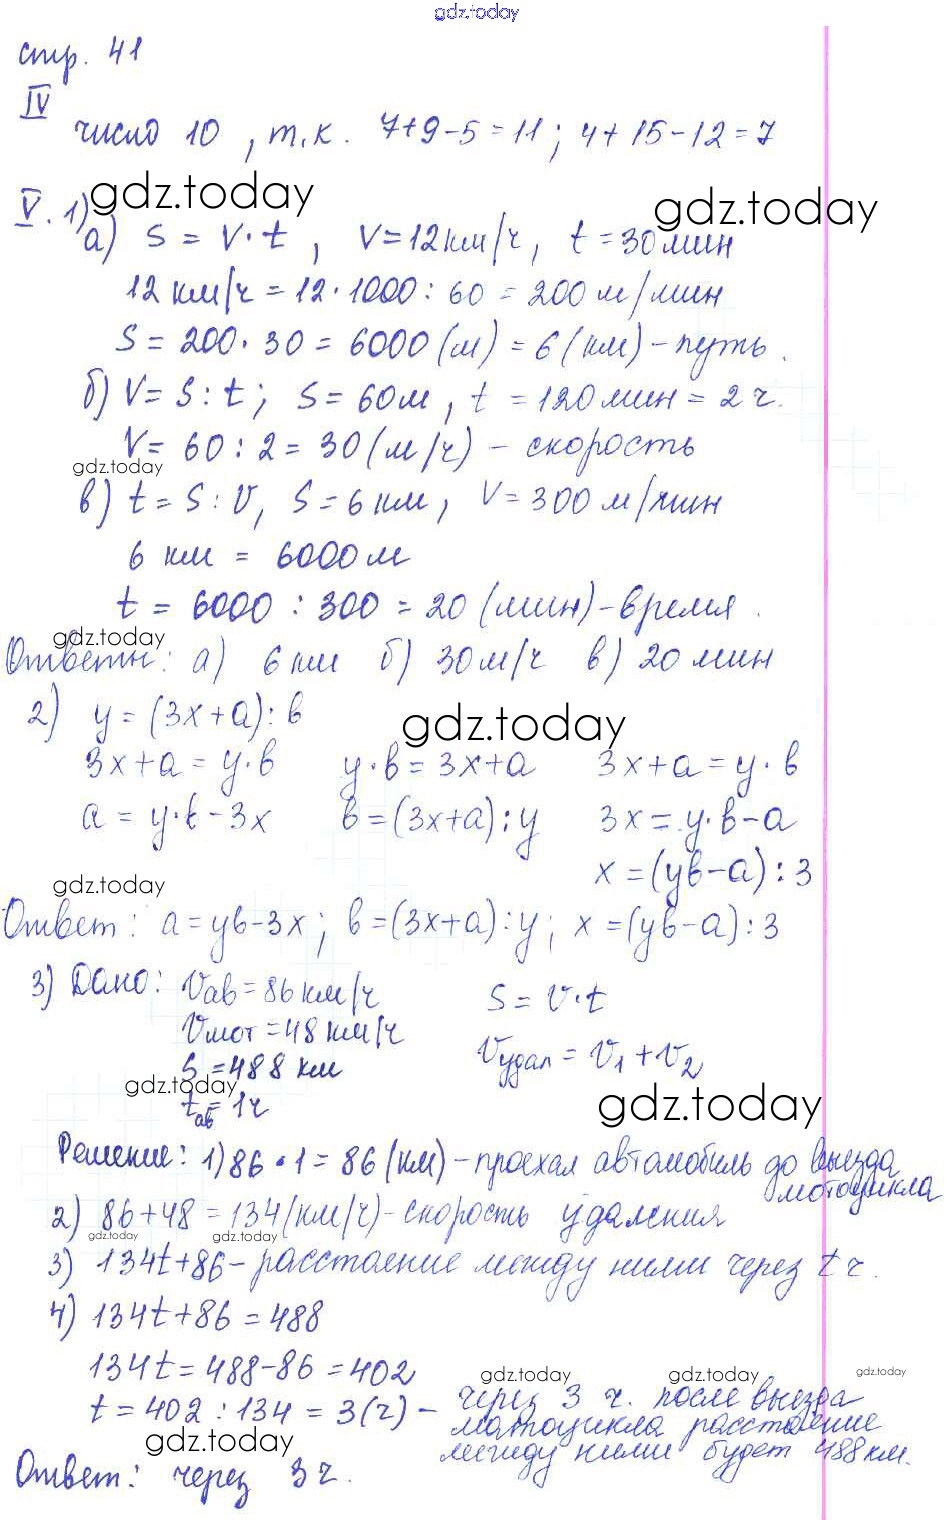 gdz.today
стр. 41
IV
число 10, т.к. 7+9-5=11; 4+15-12=7
gdz.today
gdz.today
V. 1)
а) S = V·t, V=12 км/ч, t=30 мин
12 км/ч = 12·1000:60 = 200 м/мин
S = 200·30 = 6000 (м) = 6 (км) – путь.
б) V = S:t; S = 60 м, t = 120 мин = 2 ч.
V = 60:2 = 30 (м/ч) – скорость
gdz.today
в) t = S:V, S = 6 км, V = 300 м/мин
6 км = 6000 м
t = 6000:300 = 20 (мин) – время.
gdz.today
Ответы: а) 6 км б) 30 м/ч в) 20 мин
2) y = (3x+a):в
gdz.today
3x+a = y·в y·в = 3x+a 3x+a = y·в
a = y·в-3x в = (3x+a):y 3x = y·в-a
x = (yв-a):3
gdz.today
Ответ: a = yв-3x; в = (3x+a):y; x = (yв-a):3
3) Дано: Vав = 86 км/ч S = V·t
Vмот = 48 км/ч
Vудал = V1+V2
S = 488 км
gdz.today
tав = 1 ч
gdz.today
Решение: 1) 86·1 = 86 (км) – проехал автомобиль до выезда
мотоцикла
2) 86+48 = 134 (км/ч) – скорость удаления
gdz.today gdz.today
3) 134t+86 – расстояние между ними через t ч.
4) 134t+86 = 488
134t = 488-86 = 402
gdz.today gdz.today gdz.today
t = 402:134 = 3 (ч) – через 3 ч. после выезда
мотоцикла расстояние
между ними будет 488 км.
gdz.today
Ответ: через 3 ч.